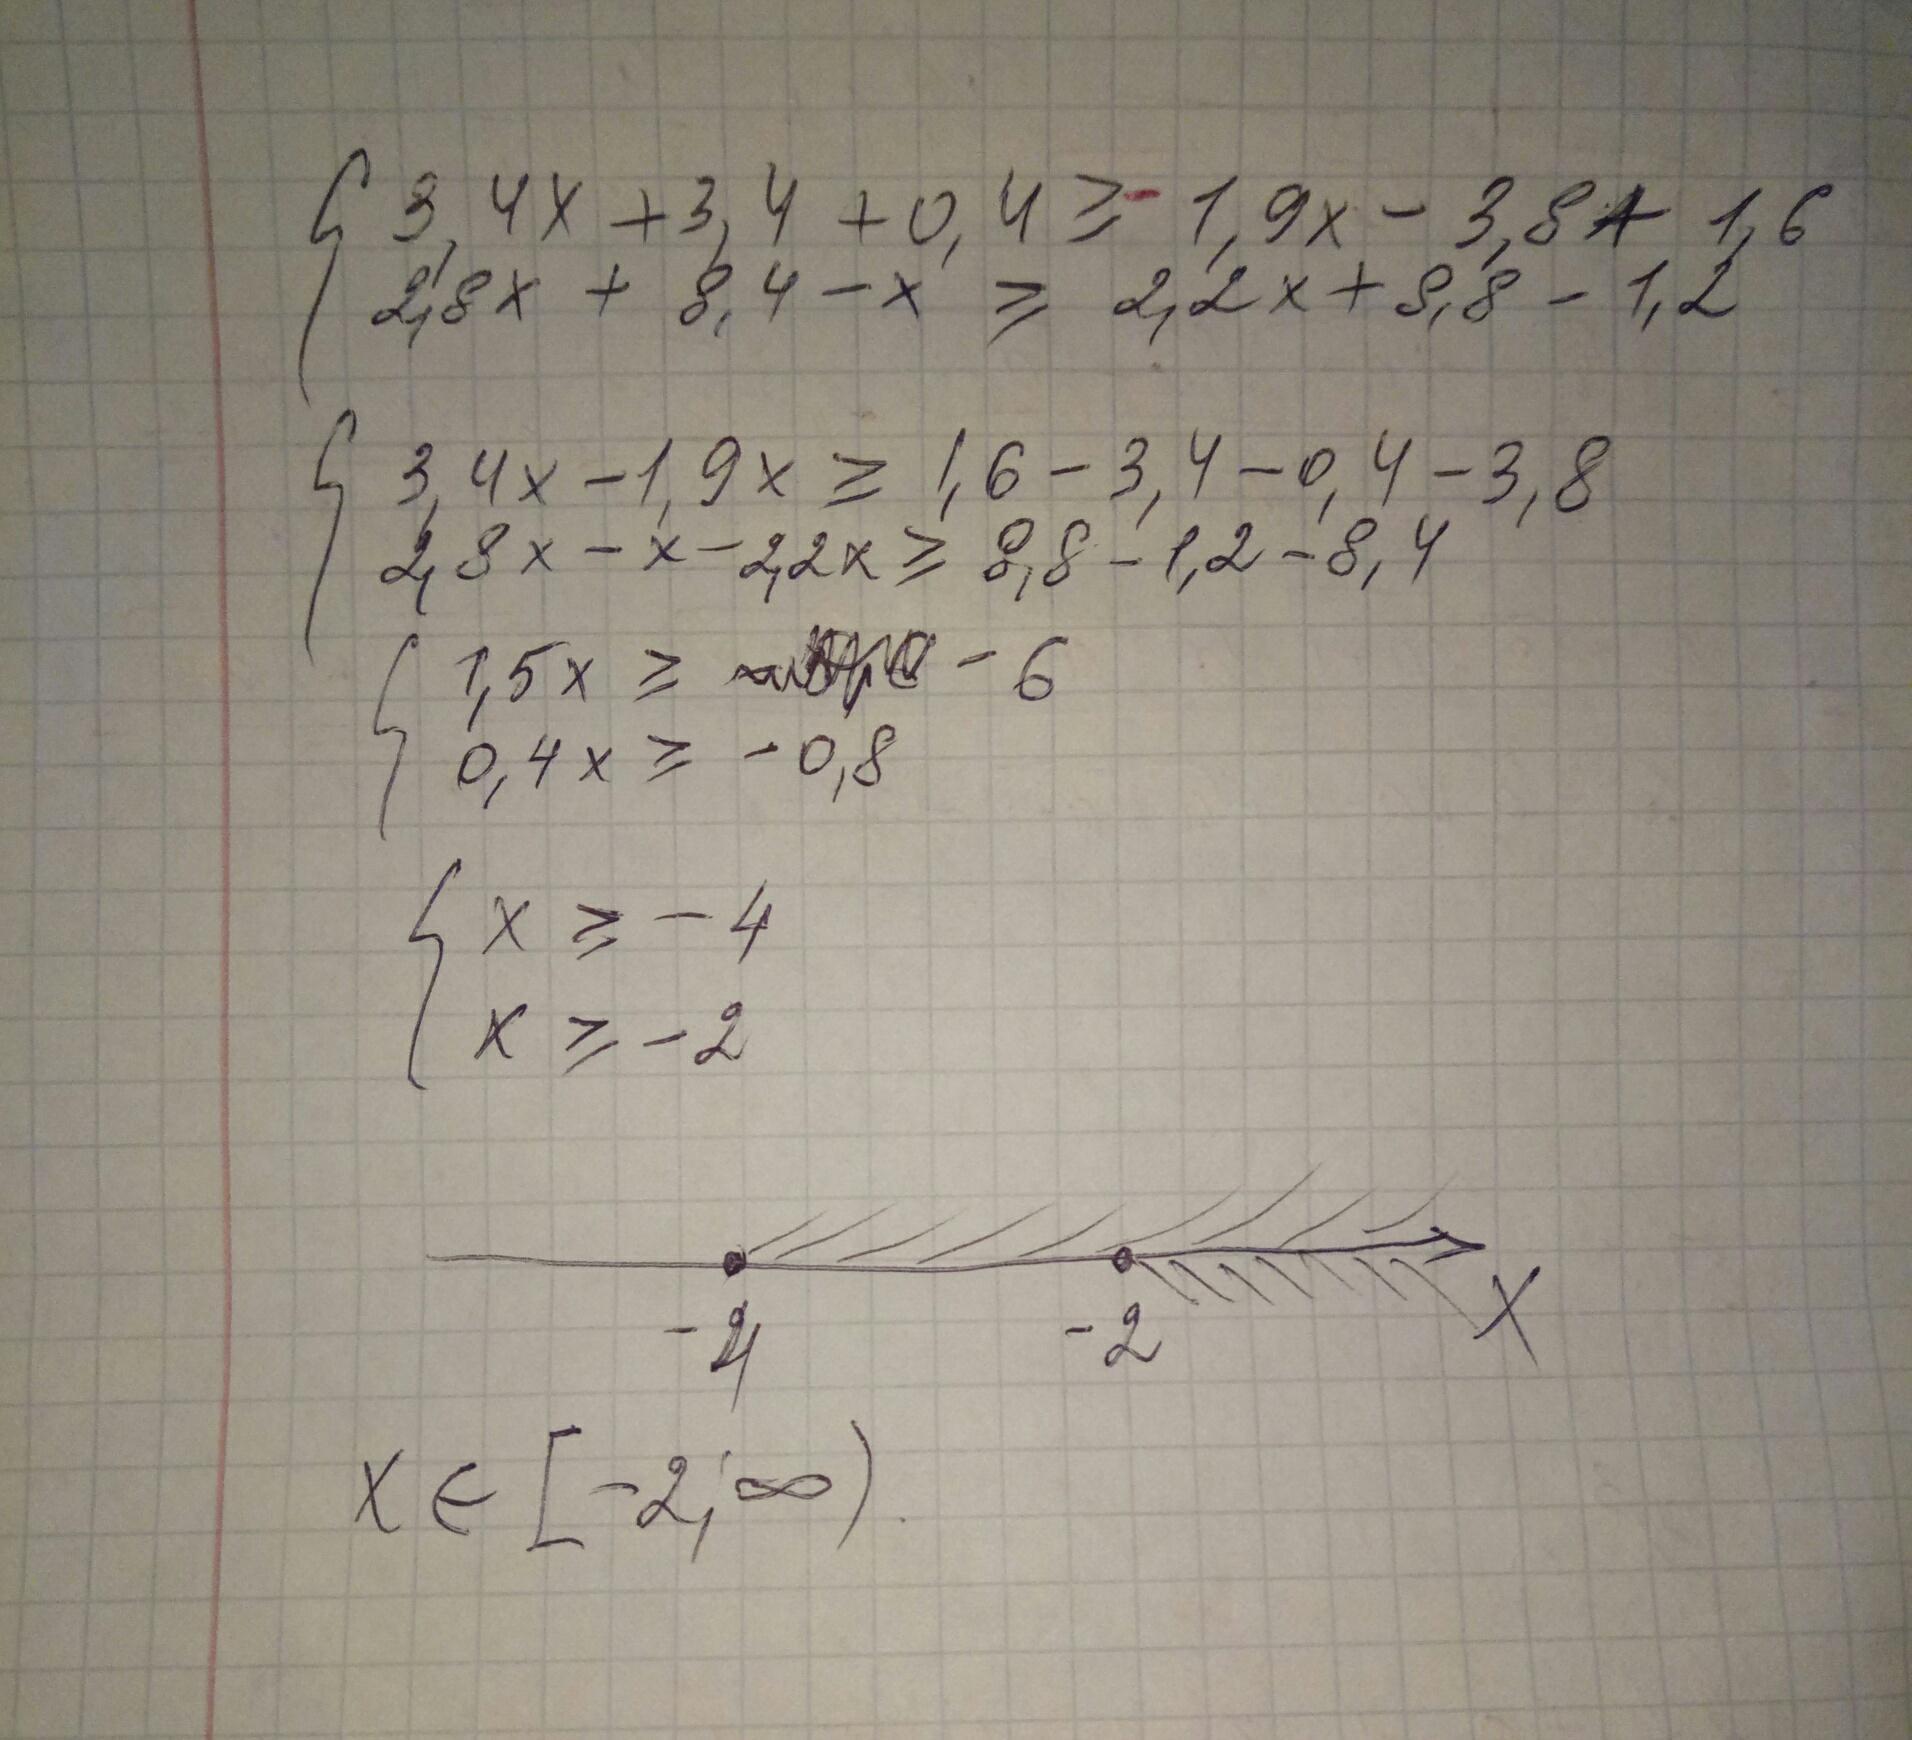 3,4x + 3,4 + 0,4 ≥ - 1,9x - 3,8 + 1,6
2,8x + 8,4 - x ≥ 2,2x + 8,8 - 1,2
3,4x - 1,9x ≥ 1,6 - 3,4 - 0,4 - 3,8
2,8x - x - 2,2x ≥ 8,8 - 1,2 - 8,4
1,5x ≥ - 6
0,4x ≥ - 0,8
x ≥ - 4
x ≥ - 2
-4 -2 X
x ∈ [-2; ∞).